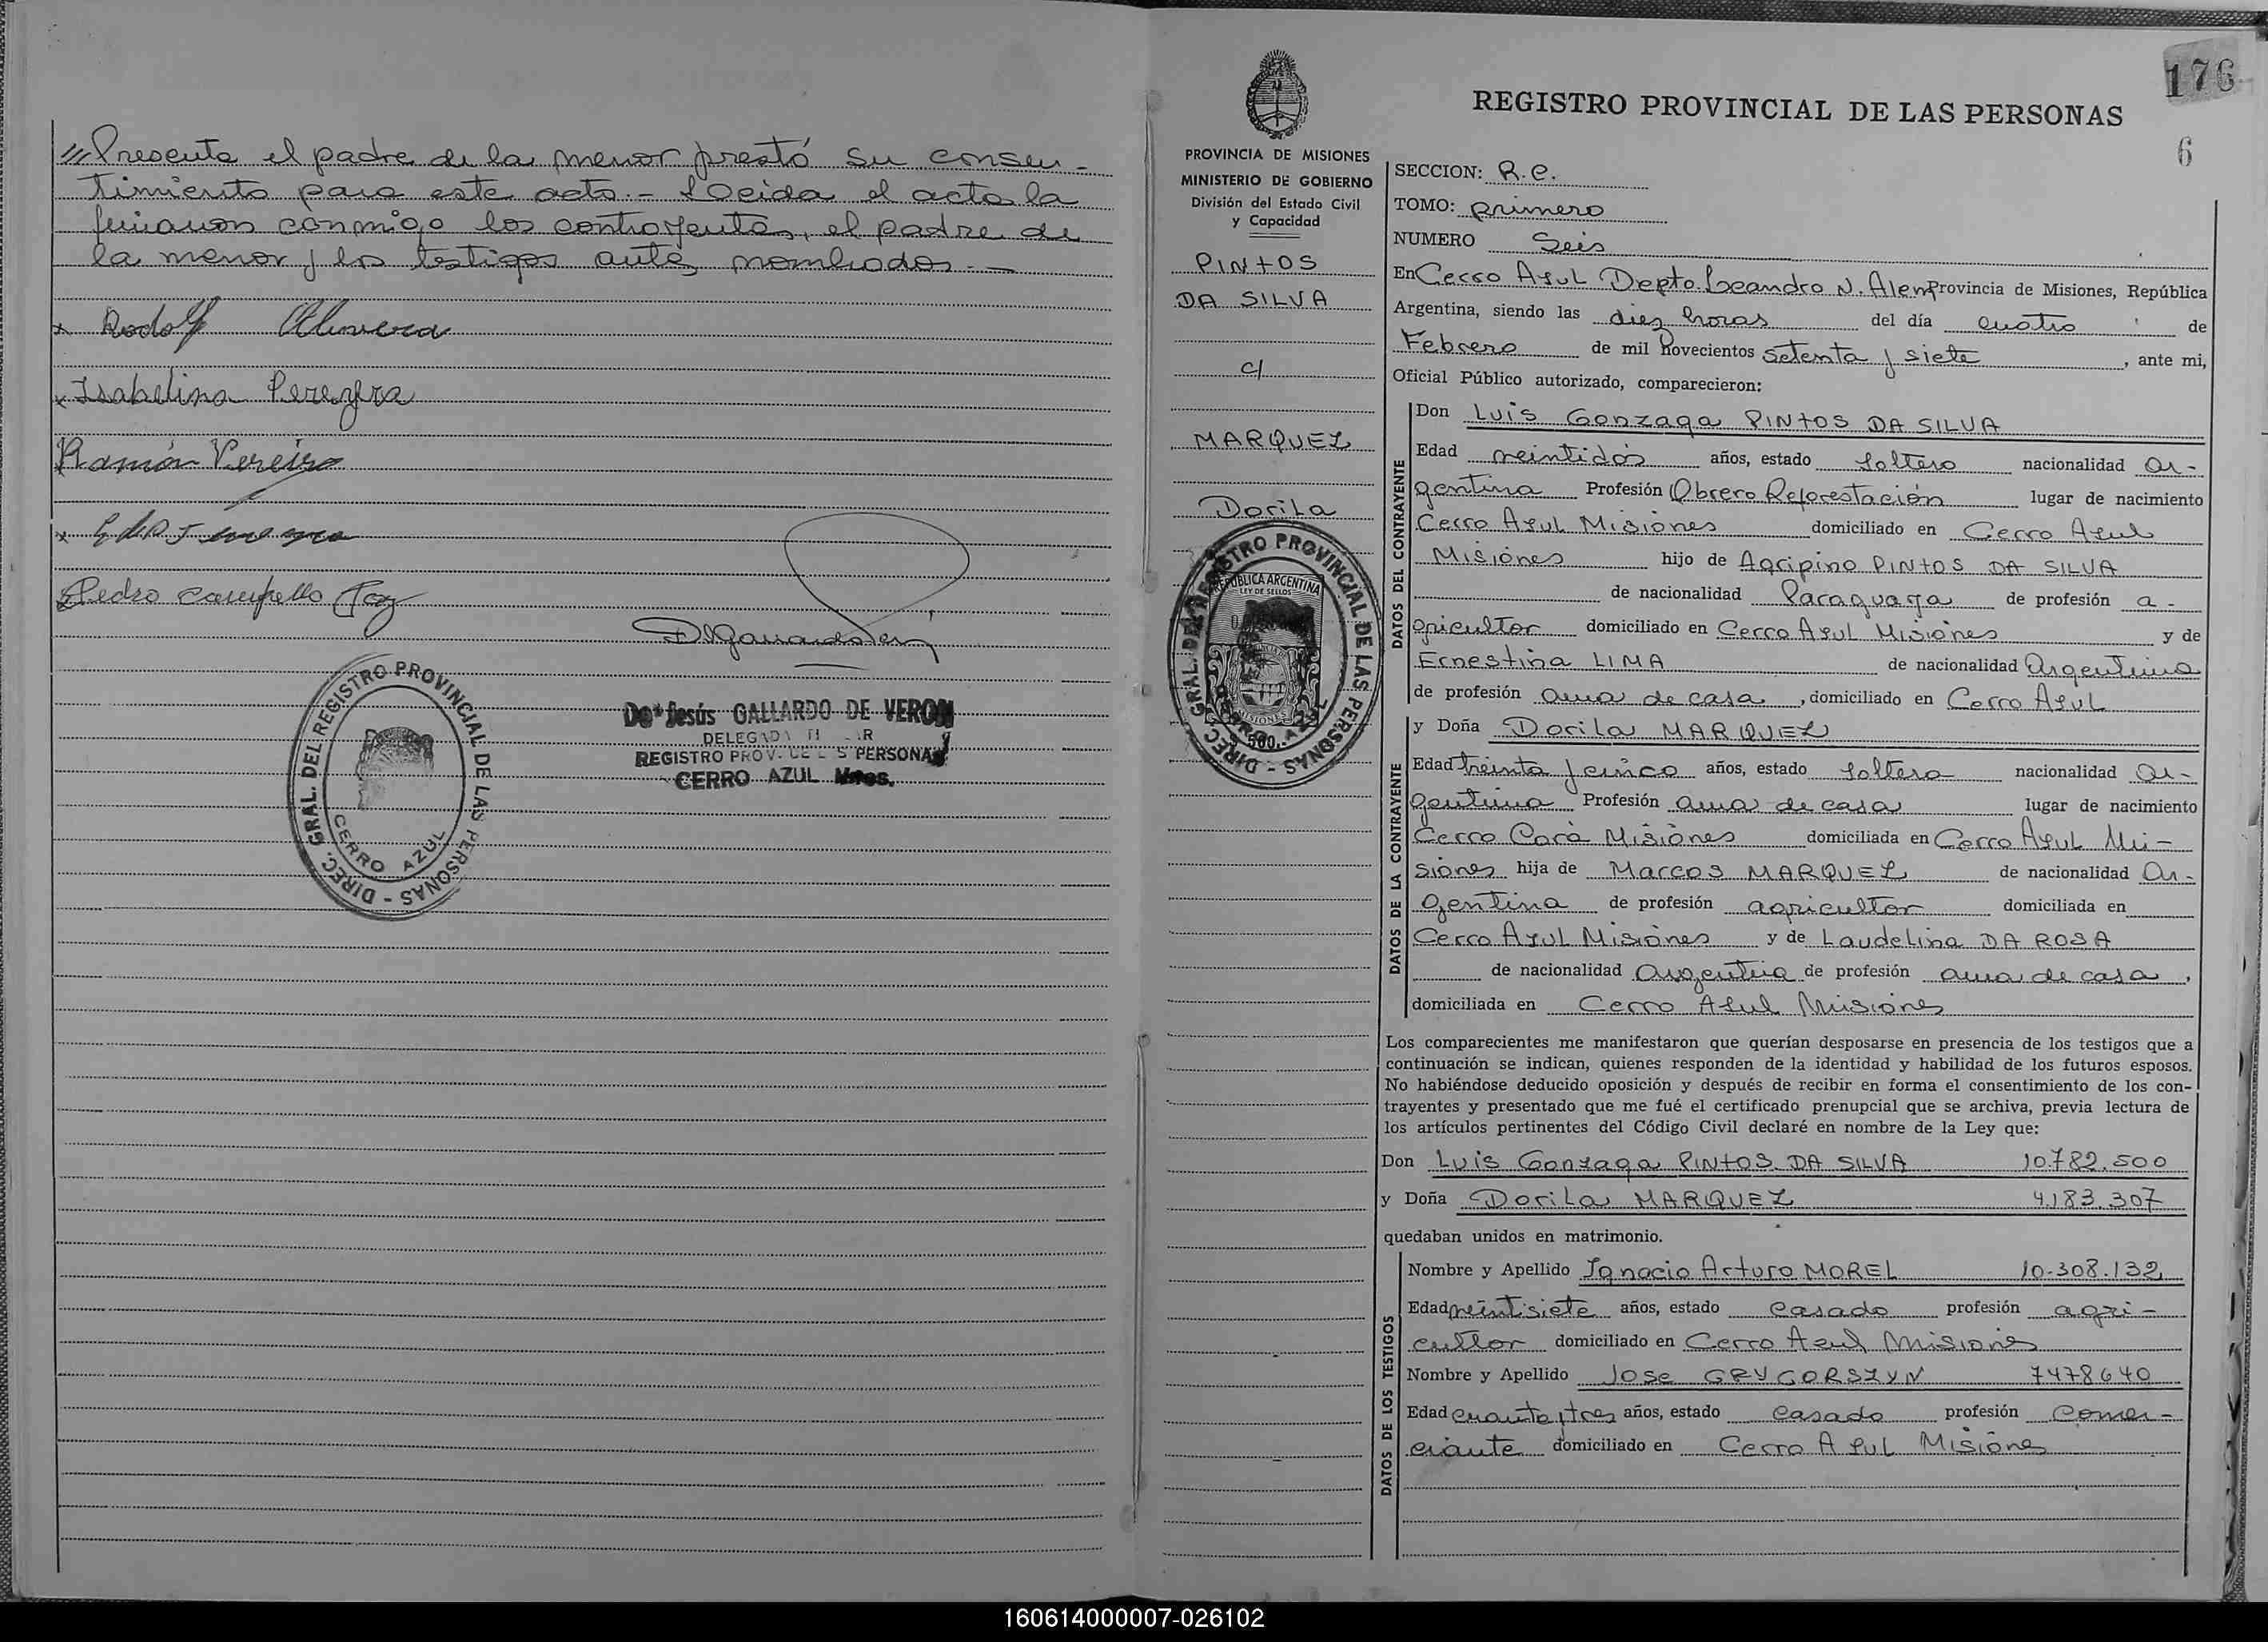 "Presente el padre de la menor prestó su consen-
timiento para este acto.- Leida el acta la
firmaron conmigo los contrayentes, el padre de
la menor y los testigos antes nombrados.-
x Rodolf Olivera
x Isabelina Pereyra
Ramón Pereira
x
Pedro Campello Paz
Dª Jesús GALLARDO DE VERON
DELEGADA TI AR
REGISTRO PROV. DE L S PERSONAS
CERRO AZUL Mnes.
DIREC. GRAL. DEL REGISTRO PROVINCIAL DE LAS PERSONAS -
CERRO AZUL
176
REGISTRO PROVINCIAL DE LAS PERSONAS
6
PROVINCIA DE MISIONES
MINISTERIO DE GOBIERNO
División del Estado Civil
y Capacidad
PINTOS
DA SILVA
c/
MARQUEZ
Dorila
DIREC. GRAL. DEL REGISTRO PROVINCIAL DE LAS PERSONAS -
REPUBLICA ARGENTINA
LEY DE SELLOS
MISIONES
SECCION: R.C.
TOMO: primero
NUMERO Seis
En Cerro Azul Depto. Leandro N. Alem Provincia de Misiones, República
Argentina, siendo las diez horas del día cuatro de
Febrero de mil novecientos setenta y siete, ante mi,
Oficial Público autorizado, comparecieron:
DATOS DEL CONTRAYENTE
Don Luis Gonzaga PINTOS DA SILVA
Edad veintidós años, estado soltero nacionalidad ar-
gentina Profesión Obrero Reforestación lugar de nacimiento
Cerro Azul Misiones domiciliado en Cerro Azul
Misiones hijo de Agripino PINTOS DA SILVA
de nacionalidad Paraguaya de profesión a-
gricultor domiciliado en Cerro Azul Misiones y de
Ernestina LIMA de nacionalidad argentina
de profesión ama de casa, domiciliado en Cerro Azul
DATOS DE LA CONTRAYENTE
y Doña Dorila MARQUEZ
Edad treinta y cinco años, estado soltera nacionalidad ar-
gentina Profesión ama de casa lugar de nacimiento
Cerro Corá Misiones domiciliada en Cerro Azul Mi-
siones hija de Marcos MARQUEZ de nacionalidad Ar-
gentina de profesión agricultor domiciliada en
Cerro Azul Misiones y de Laudelina DA ROSA
de nacionalidad argentina de profesión ama de casa,
domiciliada en Cerro Azul Misiones
Los comparecientes me manifestaron que querían desposarse en presencia de los testigos que a
continuación se indican, quienes responden de la identidad y habilidad de los futuros esposos.
No habiéndose deducido oposición y después de recibir en forma el consentimiento de los con-
trayentes y presentado que me fué el certificado prenupcial que se archiva, previa lectura de
los artículos pertinentes del Código Civil declaré en nombre de la Ley que:
Don Luis Gonzaga PINTOS DA SILVA 10.782.500
y Doña Dorila MARQUEZ 4.183.307
quedaban unidos en matrimonio.
DATOS DE LOS TESTIGOS
Nombre y Apellido Ignacio Arturo MOREL 10.308.132
Edad veintisiete años, estado casado profesión agri-
cultor domiciliado en Cerro Azul Misiones
Nombre y Apellido Jose GRYGORSZYN 7478640
Edad cuarenta y tres años, estado casado profesión comer-
ciante domiciliado en Cerro Azul Misiones
160614000007-026102